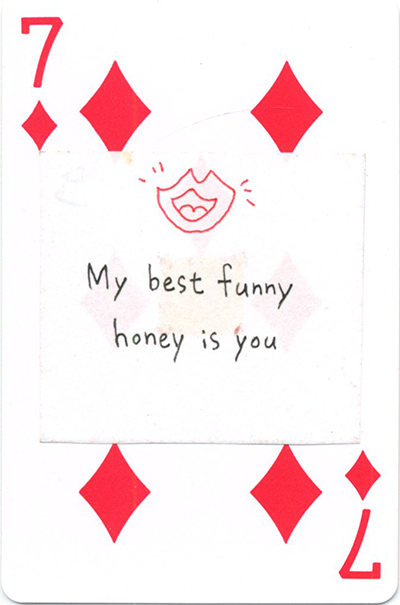 7
My best funny
honey is you
7